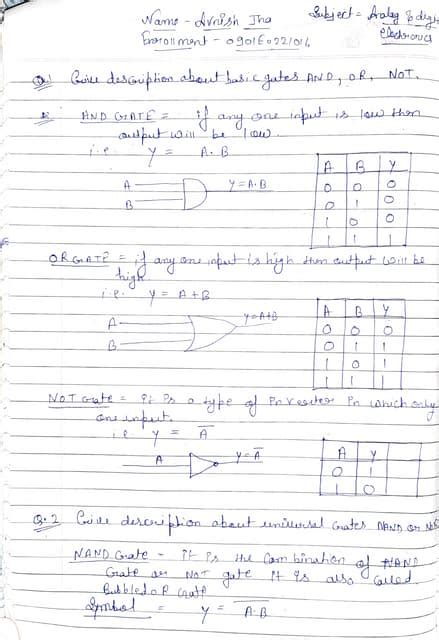 Name - Avnish Jha
Subject = Analog & digi
Electronics
Enrollment - 0901
Q.1 Give description about basic gates AND, OR, NOT.
AND GATE = if any one input is low then
output will be low.
i.e. Y = A.B
A
B
Y = A.B
A B Y
0 0 0
0 1 0
1 0 0
1 1 1
OR GATE = if any one input is high then output will be
high
i.e. Y = A+B
A
B
Y = A+B
A B Y
0 0 0
0 1 1
1 0 1
1 1 1
NOT Gate = it is a type of inverter in which only
one input.
i.e. Y = A̅
A
Y = A̅
A Y
0 1
1 0
Q.2 Give description about universal Gates NAND or
NAND Gate - it is the Combination of NAND
Gate or NOT gate it is also called
Bubbled OR Gate
Symbol = Y = A̅.̅B̅